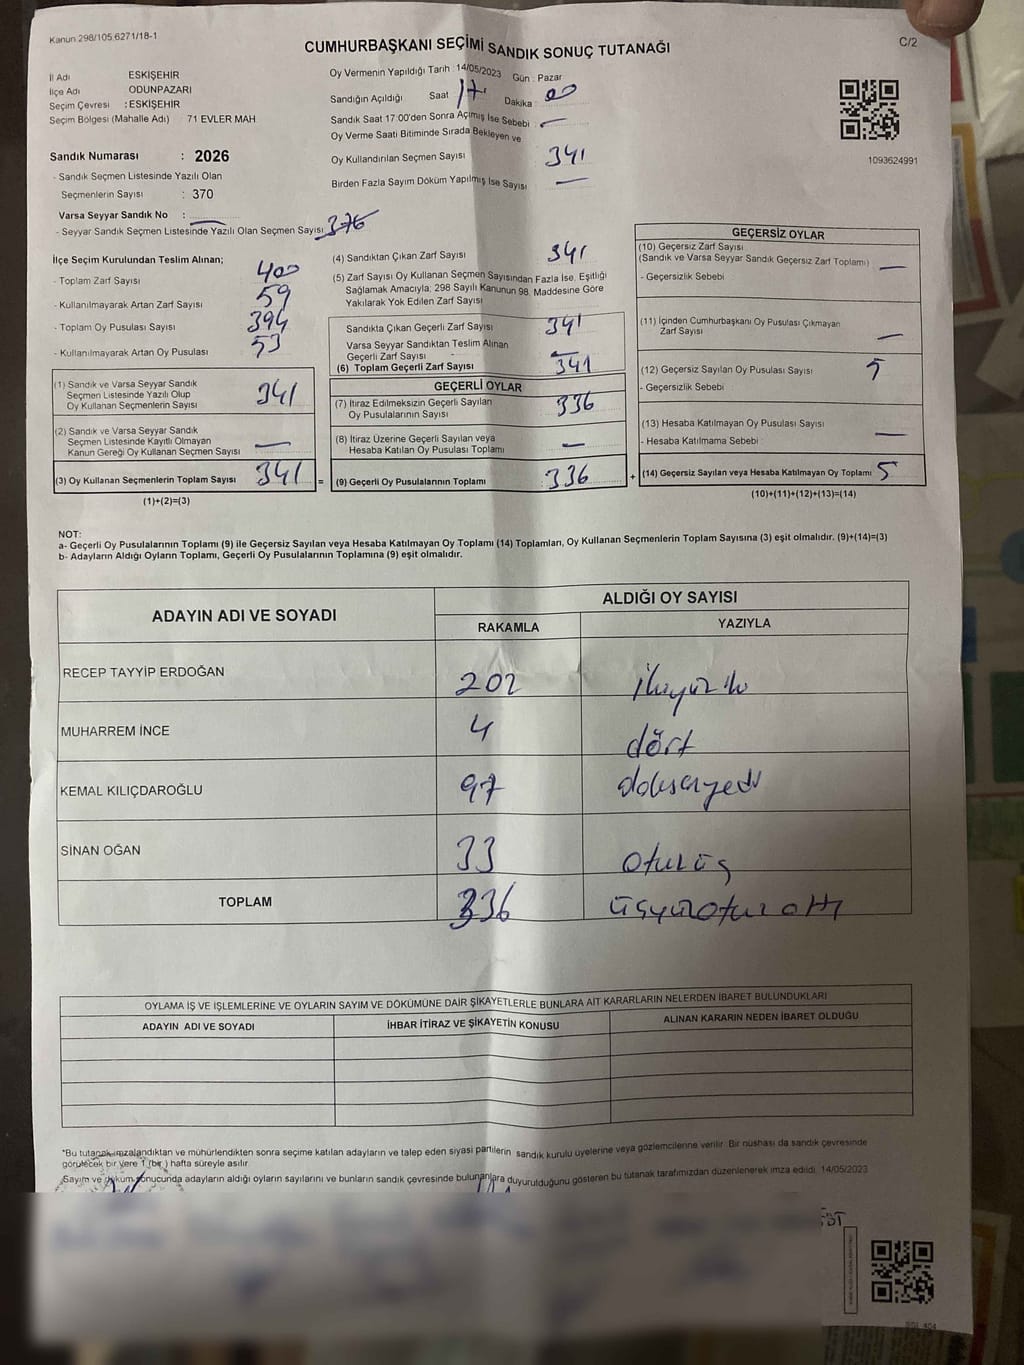 Kanun 298/105.6271/18-1
C/2
CUMHURBAŞKANI SEÇİMİ SANDIK SONUÇ TUTANAĞI
İl Adı ESKİŞEHİR
İlçe Adı ODUNPAZARI
Seçim Çevresi : ESKİŞEHİR
Seçim Bölgesi (Mahalle Adı) 71 EVLER MAH
Sandık Numarası : 2026
- Sandık Seçmen Listesinde Yazılı Olan
Seçmenlerin Sayısı : 370
Varsa Seyyar Sandık No :
- Seyyar Sandık Seçmen Listesinde Yazılı Olan Seçmen Sayısı 376
Oy Vermenin Yapıldığı Tarih : 14/05/2023 Gün : Pazar
Sandığın Açıldığı Saat 17 Dakika : 00
Sandık Saat 17:00'den Sonra Açılmış İse Sebebi : —
Oy Verme Saati Bitiminde Sırada Bekleyen ve
Oy Kullandırılan Seçmen Sayısı 341
Birden Fazla Sayım Döküm Yapılmış İse Sayısı —
1093624991
İlçe Seçim Kurulundan Teslim Alınan;
- Toplam Zarf Sayısı 400
- Kullanılmayarak Artan Zarf Sayısı 59
- Toplam Oy Pusulası Sayısı 394
- Kullanılmayarak Artan Oy Pusulası 53
(1) Sandık ve Varsa Seyyar Sandık
Seçmen Listesinde Yazılı Olup
Oy Kullanan Seçmenlerin Sayısı 341
(2) Sandık ve Varsa Seyyar Sandık
Seçmen Listesinde Kayıtlı Olmayan
Kanun Gereği Oy Kullanan Seçmen Sayısı —
(3) Oy Kullanan Seçmenlerin Toplam Sayısı 341 =
(1)+(2)=(3)
(4) Sandıktan Çıkan Zarf Sayısı 341
(5) Zarf Sayısı Oy Kullanan Seçmen Sayısından Fazla İse, Eşitliği
Sağlamak Amacıyla; 298 Sayılı Kanunun 98. Maddesine Göre
Yakılarak Yok Edilen Zarf Sayısı
Sandıkta Çıkan Geçerli Zarf Sayısı 341
Varsa Seyyar Sandıktan Teslim Alınan
Geçerli Zarf Sayısı —
(6) Toplam Geçerli Zarf Sayısı 341
GEÇERLİ OYLAR
(7) İtiraz Edilmeksizin Geçerli Sayılan
Oy Pusulalarının Sayısı 336
(8) İtiraz Üzerine Geçerli Sayılan veya
Hesaba Katılan Oy Pusulası Toplamı —
(9) Geçerli Oy Pusulalarının Toplamı 336 +
GEÇERSİZ OYLAR
(10) Geçersiz Zarf Sayısı
(Sandık ve Varsa Seyyar Sandık Geçersiz Zarf Toplamı) —
- Geçersizlik Sebebi
(11) İçinden Cumhurbaşkanı Oy Pusulası Çıkmayan
Zarf Sayısı —
(12) Geçersiz Sayılan Oy Pusulası Sayısı 5
- Geçersizlik Sebebi
(13) Hesaba Katılmayan Oy Pusulası Sayısı
- Hesaba Katılmama Sebebi —
(14) Geçersiz Sayılan veya Hesaba Katılmayan Oy Toplamı 5
(10)+(11)+(12)+(13)=(14)
NOT:
a- Geçerli Oy Pusulalarının Toplamı (9) ile Geçersiz Sayılan veya Hesaba Katılmayan Oy Toplamı (14) Toplamları, Oy Kullanan Seçmenlerin Toplam Sayısına (3) eşit olmalıdır. (9)+(14)=(3)
b- Adayların Aldığı Oyların Toplamı, Geçerli Oy Pusulalarının Toplamına (9) eşit olmalıdır.
ADAYIN ADI VE SOYADI
ALDIĞI OY SAYISI
RAKAMLA YAZIYLA
RECEP TAYYİP ERDOĞAN 202 ikiyüziki
MUHARREM İNCE 4 dört
KEMAL KILIÇDAROĞLU 97 doksanyedi
SİNAN OĞAN 33 otuzüç
TOPLAM 336 üçyüzotuz altı
OYLAMA İŞ VE İŞLEMLERİNE VE OYLARIN SAYIM VE DÖKÜMÜNE DAİR ŞİKAYETLERLE BUNLARA AİT KARARLARIN NELERDEN İBARET BULUNDUKLARI
ADAYIN ADI VE SOYADI İHBAR İTİRAZ VE ŞİKAYETİN KONUSU ALINAN KARARIN NEDEN İBARET OLDUĞU
*Bu tutanak imzalandıktan ve mühürlendikten sonra seçime katılan adayların ve talep eden siyasi partilerin sandık kurulu üyelerine veya gözlemcilerine verilir. Bir nüshası da sandık çevresinde
görülecek bir yere 1 (bir) hafta süreyle asılır.
Sayım ve döküm sonucunda adayların aldığı oyların sayılarını ve bunların sandık çevresinde bulunanlara duyurulduğunu gösteren bu tutanak tarafımızdan düzenlenerek imza edildi. 14/05/2023